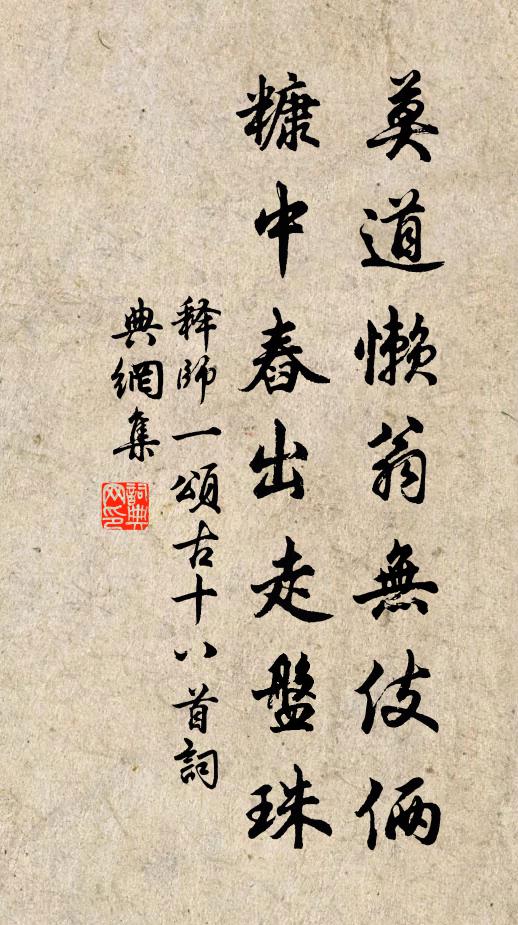 莫道懶翁無伎倆
糠中舂出走盤珠
释師一頌古十八首詞
典網集
詞典
网印